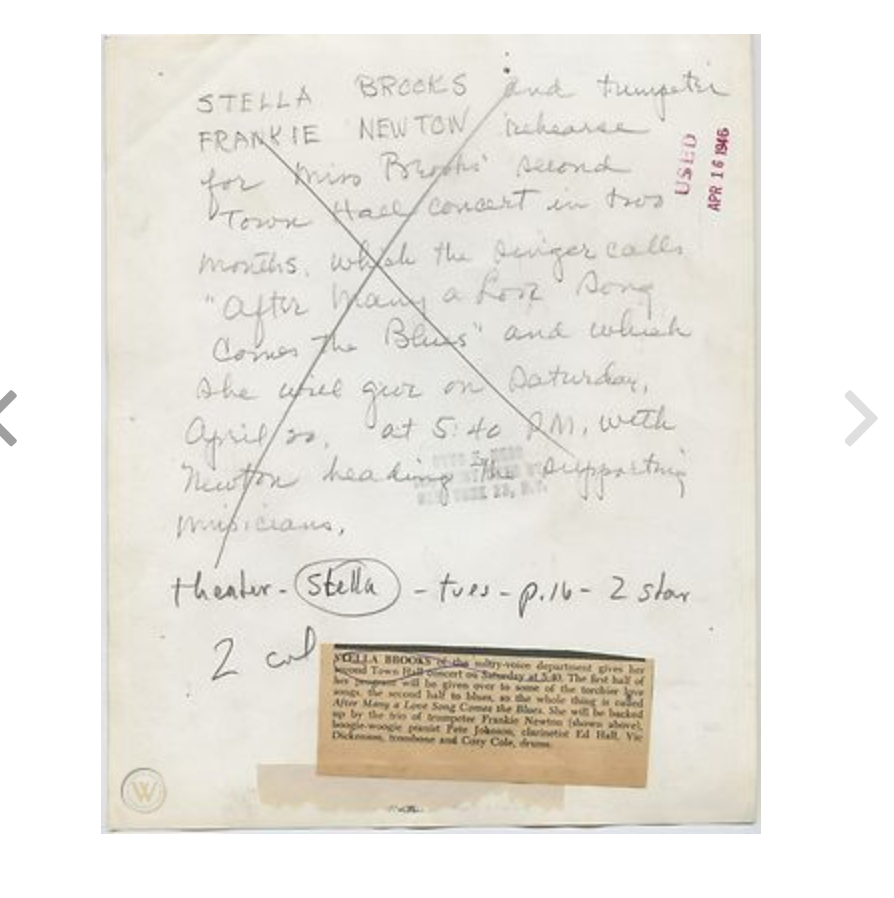 STELLA BROOKS and trumpeter
FRANKIE NEWTON rehearse
for Miss Brooks' second
Town Hall concert in two
months, which the singer calls
"After Many a Love Song
Comes the Blues" and which
she will give on Saturday,
April 20, at 5:40 P.M. with
Newton heading the supporting
musicians.
USED
APR 16 1946
theater - Stella - tues - p.16 - 2 star
2 col
STELLA BROOKS of the sultry-voice department gives her
second Town Hall concert on Saturday at 5:40. The first half of
her program will be given over to some of the torchier love
songs, the second half to blues, so the whole thing is called
After Many a Love Song Comes the Blues. She will be backed
up by the trio of trumpeter Frankie Newton (shown above),
boogie-woogie pianist Pete Johnson, clarinetist Ed Hall, Vic
Dickenson, trombone and Cozy Cole, drums.
W